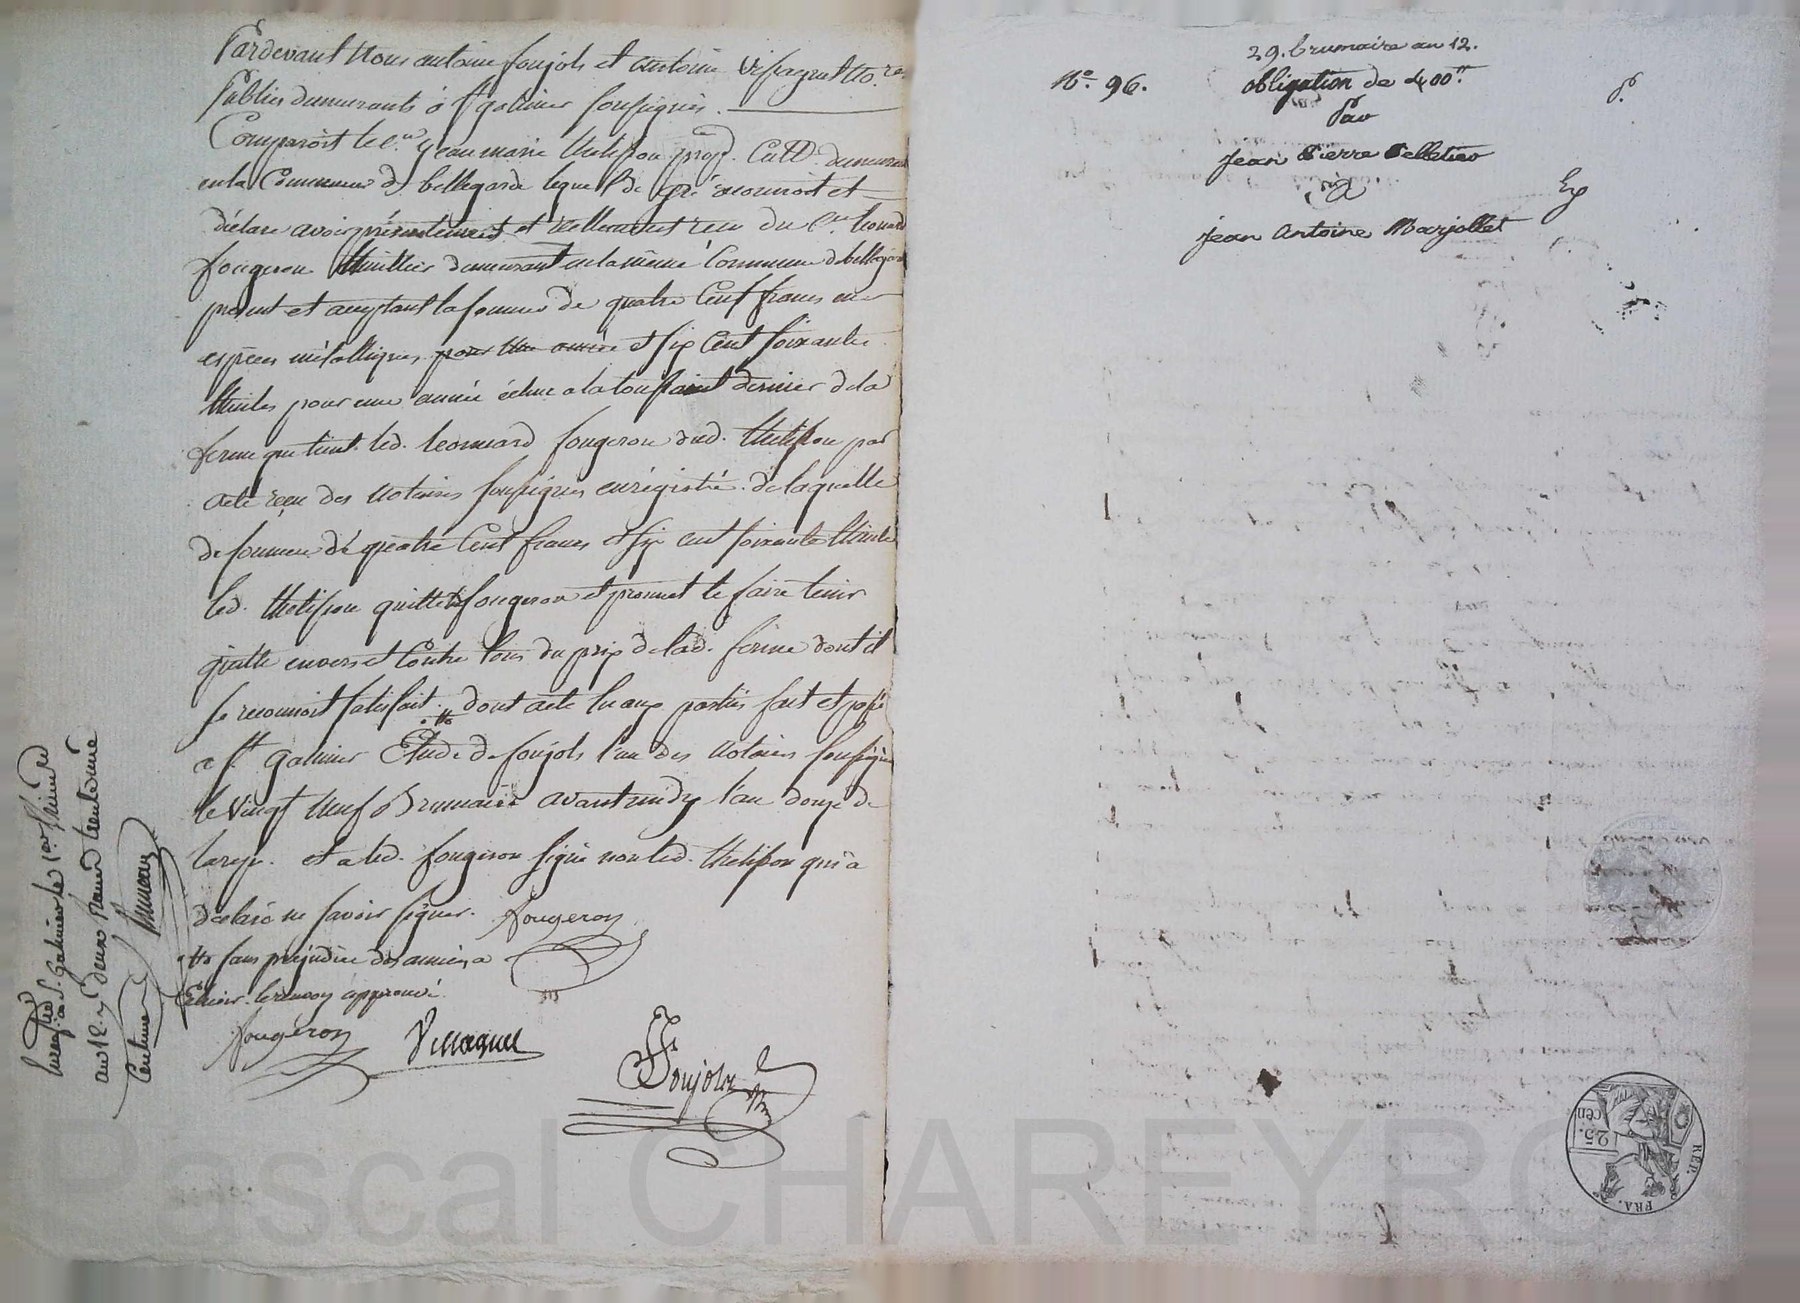 Pardevant Nous antoine foujols et antoine Vissaguet No.res
Publics demeurants à St galmier soussignés.
Comparoit le C.en jean marie thelisson prop. Cult. demeurant
en la Commune de bellegarde lequel de gré reconnoit et
déclare avoir présentement et réellement reçu du C.en leonard
fougeron thuillier demeurant en la même Commune de bellegarde
présent et acceptant la somme de quatre Cent francs en
espèces métalliques pour une année et six Cent soixante
thuiles pour une année échue a la toussaint dernier de la
ferme que tient led. leonnard fougeron dud. thelisson par
acte reçu des notaires soussignés enrégistré. de laquelle
de somme de quatre Cent francs et six cent soixante thuile
led. thelisson quitte led fougeron et promet le faire tenir
quitte envers et Contre tous du prix de lad. ferme dont il
se reconnoit satisfait. dont acte lu aux parties fait et passé
a St galmier Etude de foujols l'un des notaires soussignés
le vingt neuf Brumaire avant midy l'an douze de
la rep. et a led. fougeron signé non led. thelisson qui a
déclaré ne savoir signer. fougeron
sans préjudice des années a
Echoir. le renvoy approuvé.
fougeron Vissaguet
Foujols
Enregistré à St. Galmier le 1.er frimaire
an 12. deux francs trente une
Centimes
29. brumaire an 12.
N.o 96. obligation de 400.tt P.
Par
Jean Pierre Pelletier
à Ex
Jean Antoine Marjollet
25. cen
REP. FRA.
Pascal CHAREYRO